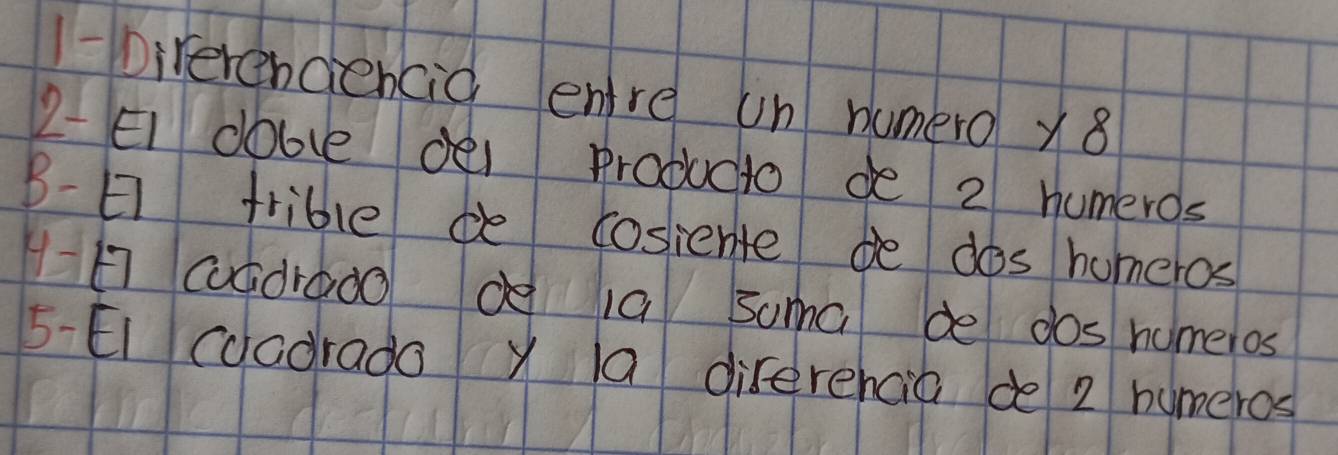 1-Diferendencia entre un numero y 8
2- El doble del producto de 2 numeros
3- El trible de cosiente de dos numeros
4- El cuadrado de la suma de dos numeros
5- El cuadrado y la diferencia de 2 numeros